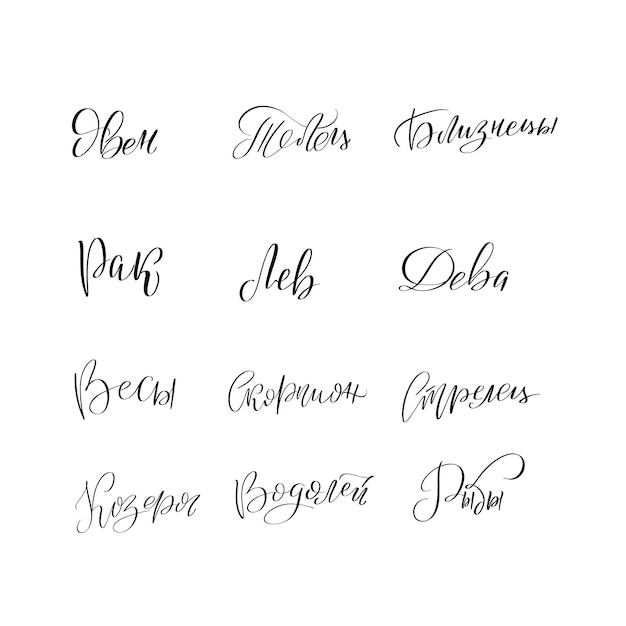 Овен Телец Близнецы
Рак Лев Дева
Весы Скорпион Стрелец
Козерог Водолей Рыбы